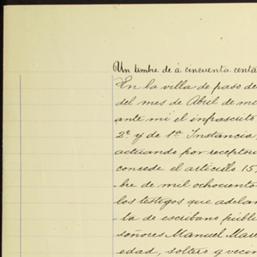 Un timbre de á cincuenta centa
En la villa de paso de
del mes de Abril de mi
ante mi el infrascrito
2º y de 1ª Instancia
actuando por receptori
concede el articulo 15,
bre de mil ochociento
los testigos que adelan
ta de escribano públic
señores Manuel Mau
edad, soltero y vecin